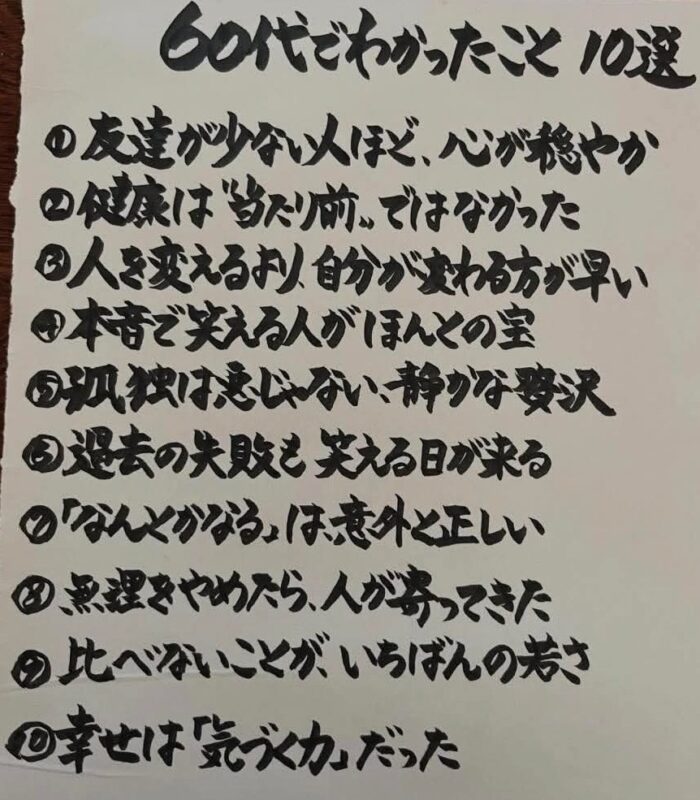 60代でわかったこと 10選
① 友達が少ない人ほど、心が穏やか
② 健康は〝当たり前〟ではなかった
③ 人を変えるより、自分が変わる方が早い
④ 本音で笑える人がほんとの宝
⑤ 孤独は悪じゃない、静かな贅沢
⑥ 過去の失敗も 笑える日が来る
⑦ 「なんとかなる」は、意外と正しい
⑧ 無理をやめたら、人が寄ってきた
⑨ 比べないことが、いちばんの若さ
⑩ 幸せは「気づく力」だった